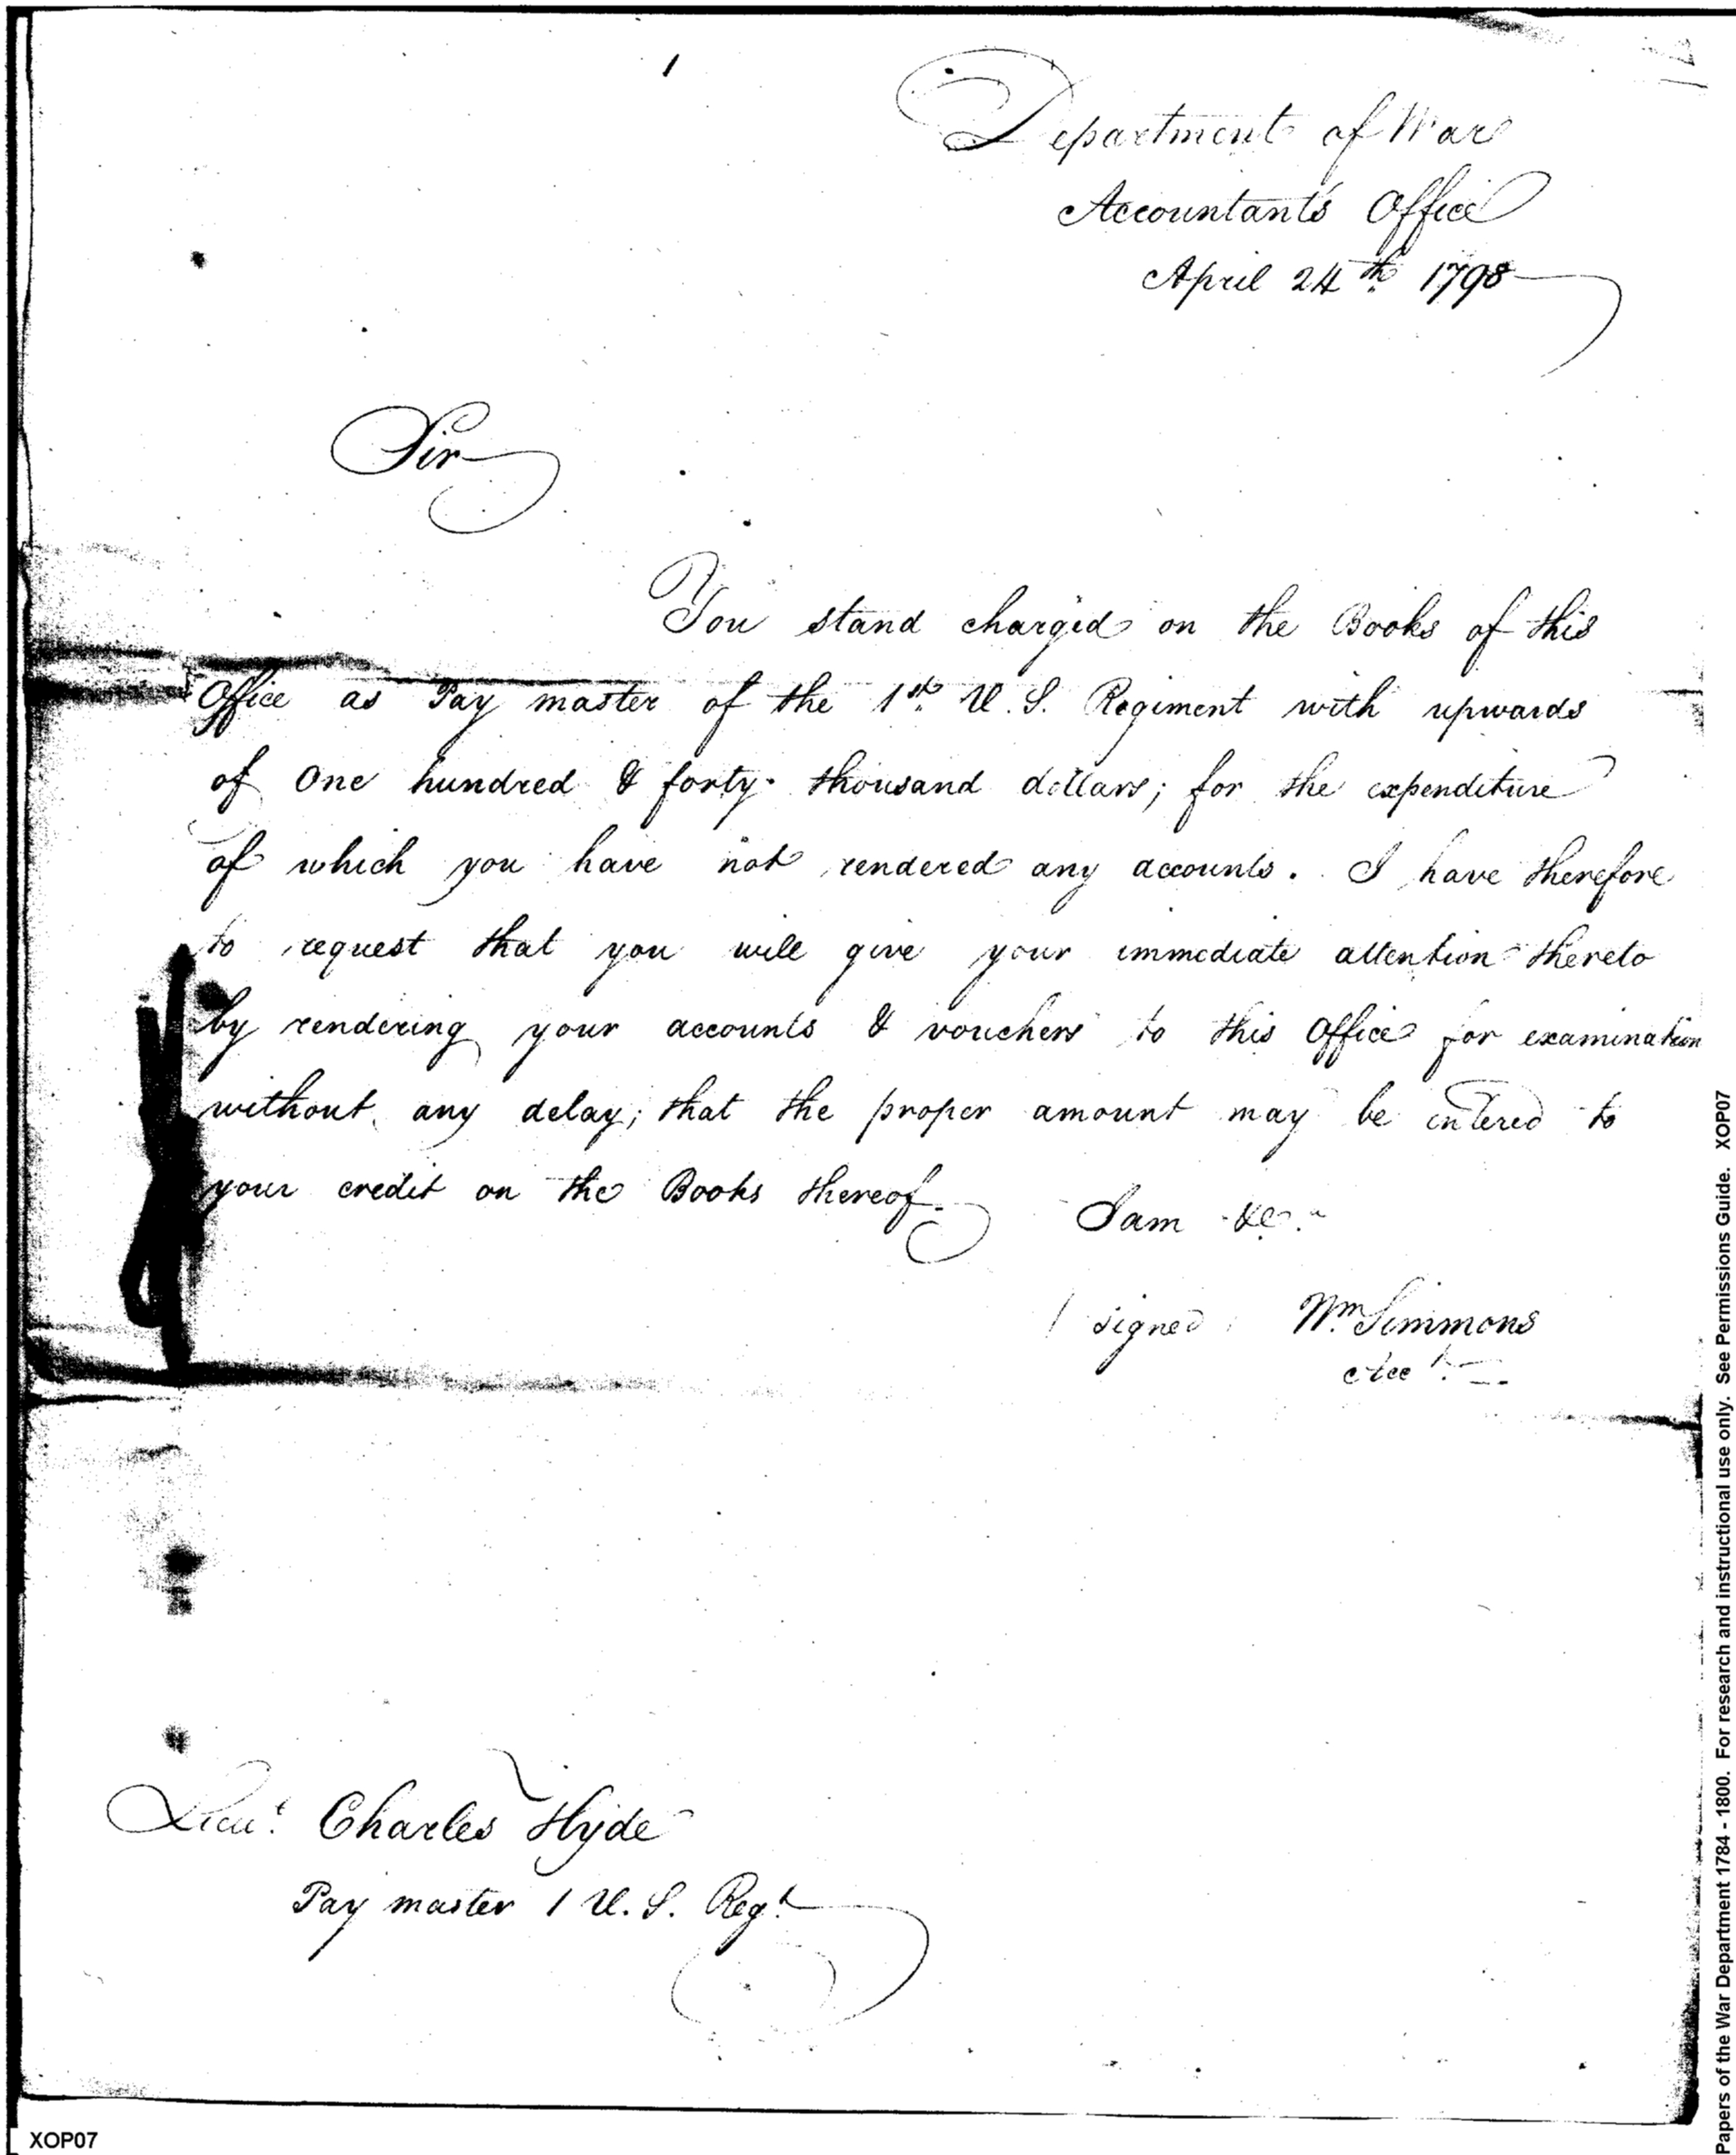 1
Department of War
Accountant's Office
April 24th 1798
Sir
You stand charged on the Books of this
Office as Pay master of the 1st U. S. Regiment with upwards
of One hundred & forty thousand dollars; for the expenditure
of which you have not rendered any accounts. I have therefore
to request that you will give your immediate attention thereto
by rendering your accounts & vouchers to this Office for examination
without any delay; that the proper amount may be entered to
your credit on the Books thereof.
I am &c.
signed Wm Simmons
Acct
Lieut Charles Hyde
Pay master 1 U. S. Regt
XOP07
Papers of the War Department 1784 - 1800. For research and instructional use only. See Permissions Guide. XOP07